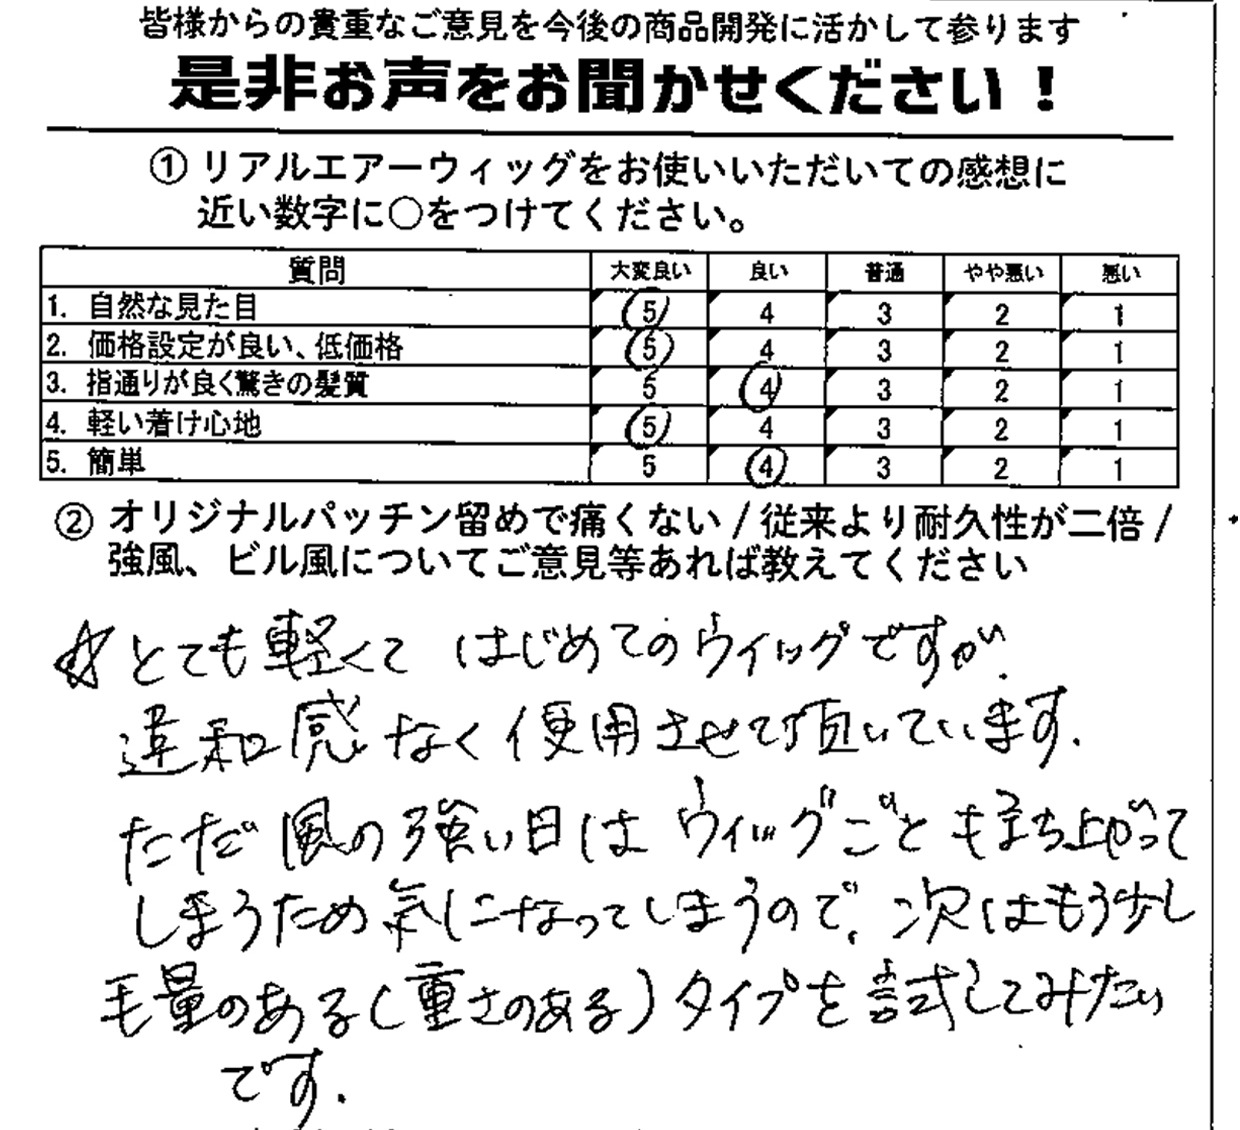 皆様からの貴重なご意見を今後の商品開発に活かして参ります
是非お声をお聞かせください！
① リアルエアーウィッグをお使いいただいての感想に
近い数字に○をつけてください。
質問 大変良い 良い 普通 やや悪い 悪い
1. 自然な見た目 5 4 3 2 1
2. 価格設定が良い、低価格 5 4 3 2 1
3. 指通りが良く驚きの髪質 5 4 3 2 1
4. 軽い着け心地 5 4 3 2 1
5. 簡単 5 4 3 2 1
② オリジナルパッチン留めで痛くない / 従来より耐久性が二倍 /
強風、ビル風についてご意見等あれば教えてください
☆とても軽くて はじめてのウィッグですが、
違和感なく使用させて頂いています.
ただ風の強い日は ウィッグごと もち上がって
しまうため気になってしまうので、次はもう少し
毛量のある(重さのある)タイプを試してみたい
です.